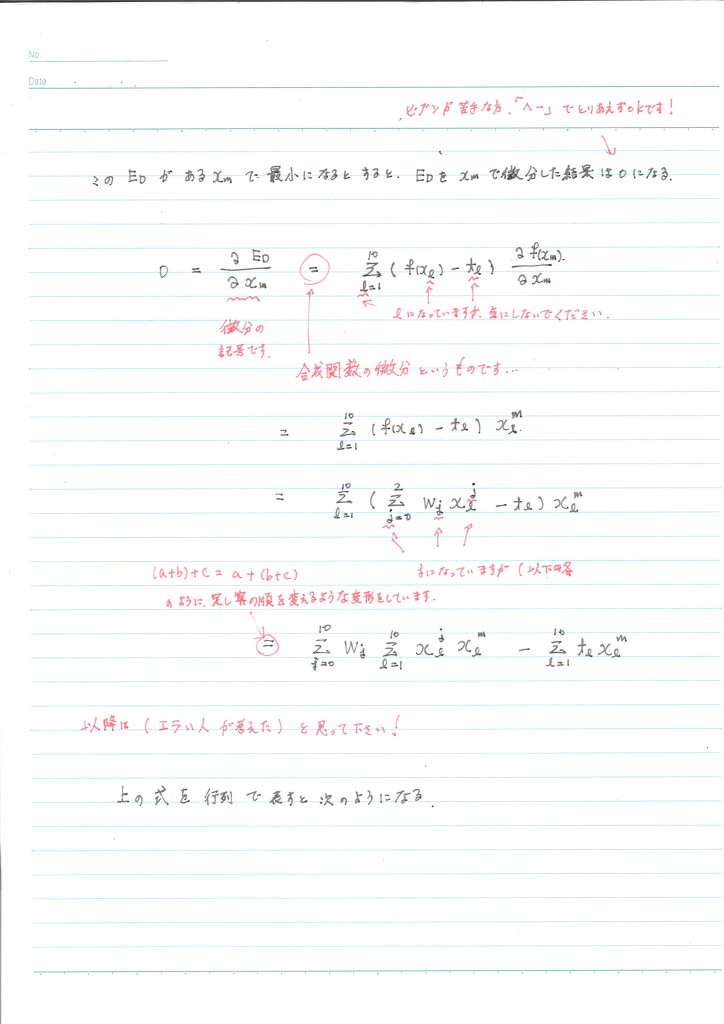 No.
Date
ビブンが苦手な方、「へー」でとりあえずOKです！
この ED が ある xm で 最小になるとすると、EDを xm で微分した結果は 0 になる.
0 = ∂ED/∂xm = Σ_{l=1}^{10} ( f(xl) - tl ) ∂f(xm)/∂xm.
lになっていますが、気にしないでください.
微分の
記号です.
合成関数の微分というものです...
= Σ_{l=1}^{10} ( f(xl) - tl ) xl^m.
= Σ_{l=1}^{10} ( Σ_{j=0}^{2} wj xl^j - tl ) xl^m
(a+b)+c = a+(b+c)
jになっていますが (以下同容
のように、足し算の順を変えるような変形をしています.
= Σ_{j=0}^{10} wj Σ_{l=1}^{10} xl^j xl^m - Σ_{l=1}^{10} tl xl^m
以降は (エラい人が考えた) と思って下さい！
上の式を行列で表すと次のようになる.